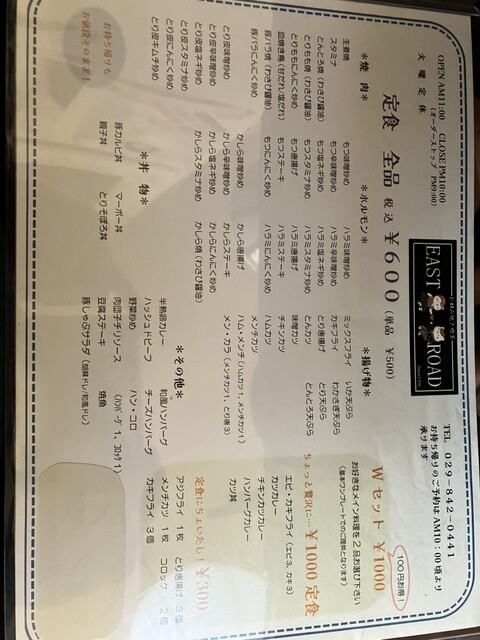 OPEN AM11:00 CLOSE PM10:00
(オーダーストップ PM9:00)
火曜定休
EAST ROAD
TEL 029-842-0441
お持ち帰りのご予約は AM10:00頃より
承ります
定食 全品 税込 ¥600 (単品 ¥500)
*焼肉*
生姜焼
スタミナ
とんとろ焼(わさび醤油)
とりもも焼(わさび醤油)
とりももにんにく炒め
皿焼豚鳥(甘だれ/塩だれ)
豚バラ焼(わさび醤油)
豚バラにんにく炒め
とり皮味噌炒め
とり皮辛味噌炒め
とり皮塩ネギ炒め
とり皮スタミナ炒め
とり皮にんにく炒め
とり皮キムチ炒め
*ホルモン*
もつ味噌炒め
もつ辛味噌炒め
もつ塩ネギ炒め
もつスタミナ炒め
もつ唐揚げ
もつステーキ
もつにんにく炒め
かしら味噌炒め
かしら辛味噌炒め
かしら塩ネギ炒め
かしらスタミナ炒め
ハラミ味噌炒め
ハラミ辛味噌炒め
ハラミ塩ネギ炒め
ハラミスタミナ炒め
ハラミ唐揚げ
ハラミステーキ
ハラミにんにく炒め
かしら唐揚げ
かしらステーキ
かしらにんにく炒め
かしら焼(わさび醤油)
*揚げ物*
ミックスフライ
カキフライ
とり唐揚げ
とんカツ
味噌カツ
チキンカツ
ハムカツ
メンチカツ
ハム・メンチ(ハムカツ1、メンチカツ1)
メン・カラ(メンチカツ1、とり唐3)
いか天ぷら
わかさぎ天ぷら
とり天ぷら
とんとろ天ぷら
Wセット ¥1000
100円お得!
お好きなメイン料理を2品お選び下さい
(基本ワンプレートでのご提供となります)
ちょっと贅沢に… ¥1000 定食
エビ・カキフライ(エビ3、カキ3)
カツカレー
チキンカツカレー
ハンバーグカレー
カツ丼
*丼物*
豚カルビ丼 マーボー丼
親子丼 とりそぼろ丼
*その他*
半熟卵カレー
ハッシュドビーフ
野菜炒め
肉団子チリソース
豆腐ステーキ
豚しゃぶサラダ(胡麻ドレ/和風ドレ)
和風ハンバーグ
チーズハンバーグ
ハン・コロ
(ハンバーグ1、コロッケ1)
焼魚
定食にちょいたし! ¥300
アジフライ 1枚 とり唐揚 3個
メンチカツ 1枚 コロッケ 2個
カキフライ 3個
お持ち帰りも
お値段そのまま!